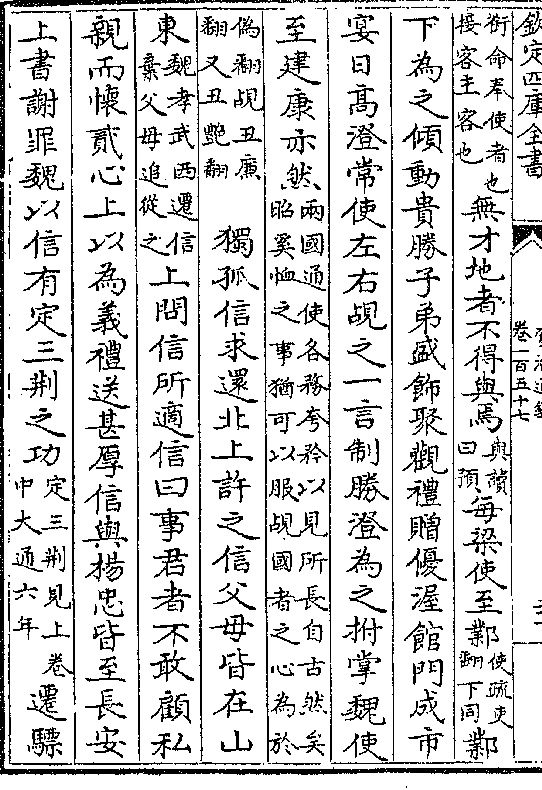 欽定四庫全書
卷一百五十七
銜命奉使者也接客主客也無才地者不得與焉與讀曰預每梁使至鄴使疏吏翻下同鄴
下為之傾動貴勝子弟盛飾聚觀禮贈優渥館門成市
宴日髙澄常使左右覘之一言制勝澄為之拊掌魏使
至建康亦然兩國通使各務夸矜以見所長自古然矣昭奚恤之事猶可以服覘國者之心為於
偽翻覘丑廉翻又丑艷翻 獨孤信求還北上許之信父母皆在山
東魏孝武西遷信棄父母追從之上問信所適信曰事君者不敢顧私
親而懷貳心上以為義禮送甚厚信與楊忠皆至長安
上書謝罪魏以信有定三荆之功定三荆見上卷中大通六年遷驃